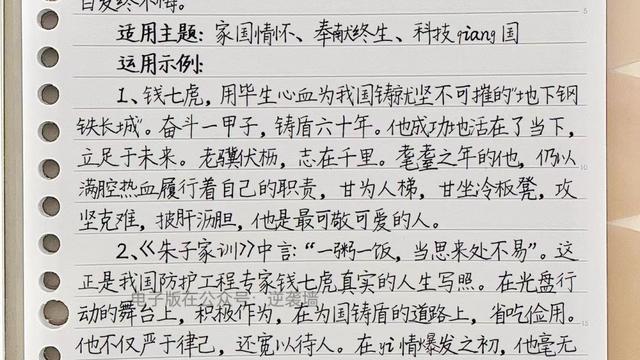 白发终不悔。
适用主题：家国情怀、奉献终生、科技qiang国
运用示例：
1、钱七虎，用毕生心血为我国铸就坚不可摧的“地下钢
铁长城”。奋斗一甲子，铸盾六十年。他成功地活在了当下，
立足于未来。老骥伏枥，志在千里。耄耋之年的他，仍以
满腔热血履行着自己的职责，甘为人梯，甘坐冷板凳，攻
坚克难，披肝沥胆，他是最可敬可爱的人。
2、《朱子家训》中言：“一粥一饭，当思来处不易”。这
正是我国防护工程专家钱七虎真实的人生写照。在光盘行
电子版在公众号：逆袭墙
动的舞台上，积极作为，在为国铸盾的道路上，省吃俭用。
他不仅严于律己，还宽以待人。在yi情爆发之初，他毫无
5
15